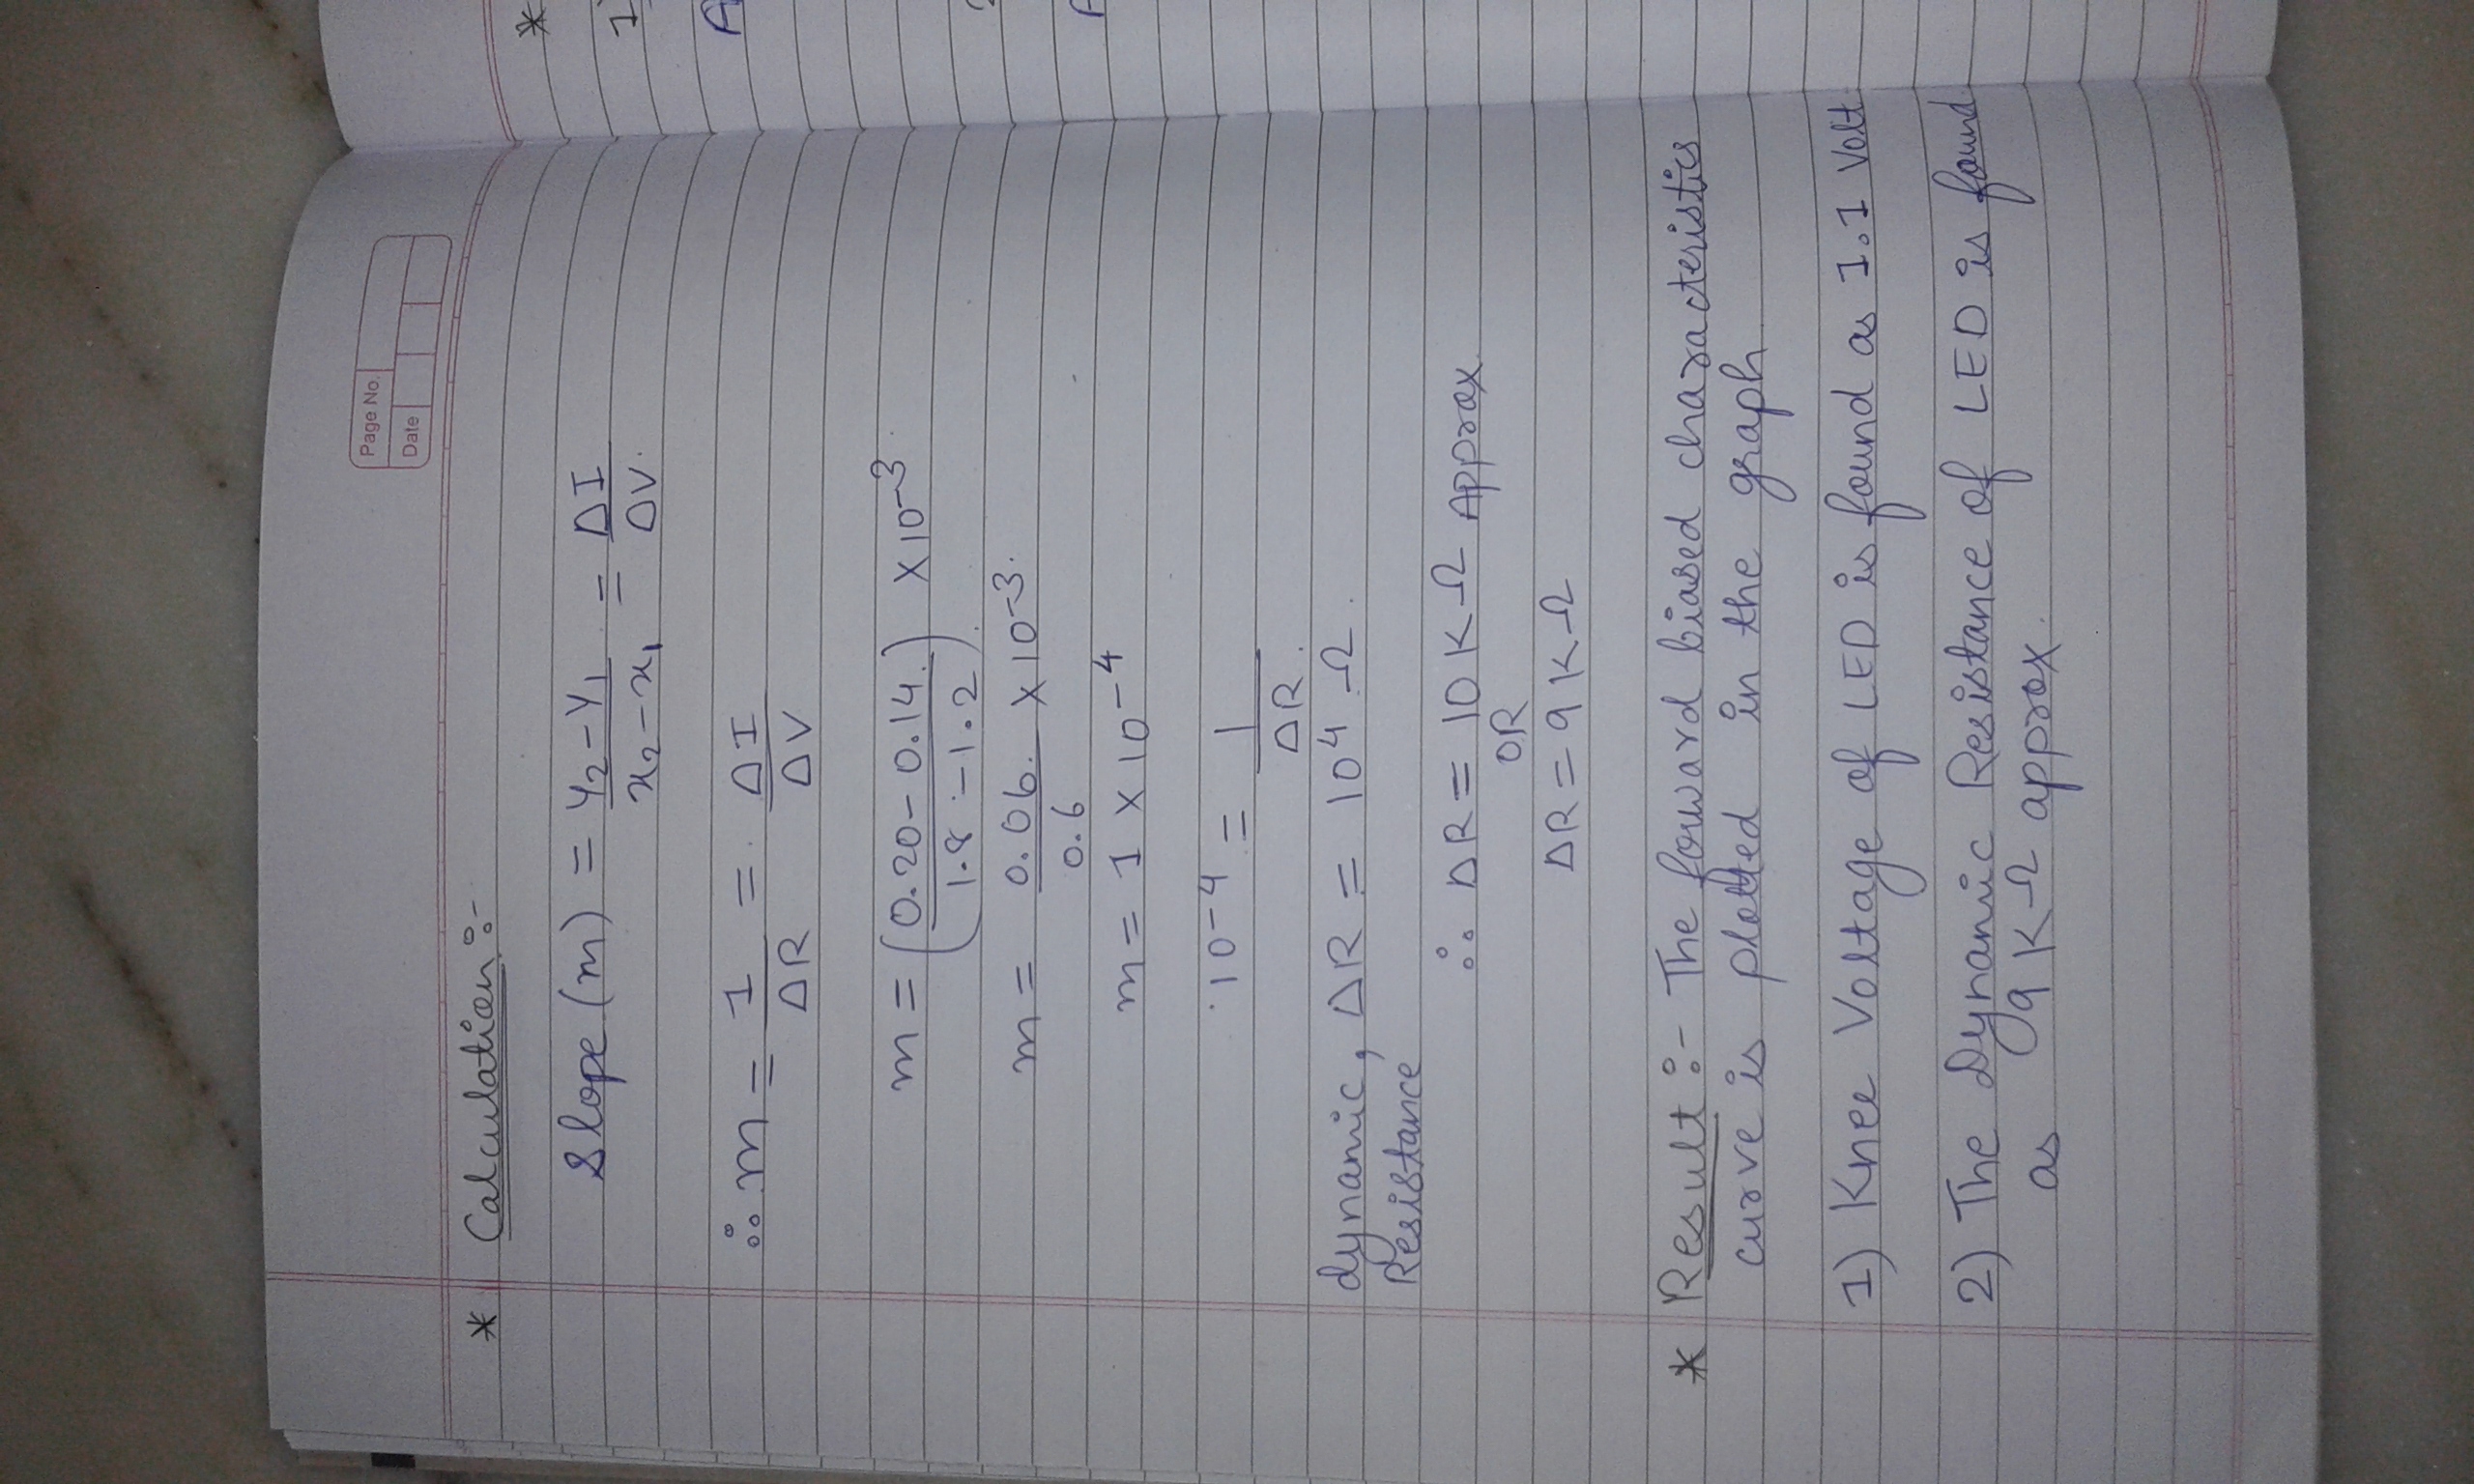 Page No.
Date
* Calculation :-
Slope (m) = Y2-Y1 / x2-x1 = ΔI / ΔV.
∴ m = 1 / ΔR = ΔI / ΔV
m = (0.20 - 0.14 / 1.8 - 1.2) × 10^-3
m = 0.06 / 0.6 × 10^-3.
m = 1 × 10^-4
10^-4 = 1 / ΔR.
dynamic, ΔR = 10^4 Ω.
Resistance
∴ ΔR = 10 KΩ Approx.
OR
ΔR = 9 KΩ
* Result :- The forward biased characteristics
curve is plotted in the graph
1) Knee Voltage of LED is found as 1.1 Volt
2) The Dynamic Resistance of LED is found
as 9 KΩ approx.
*
1
A